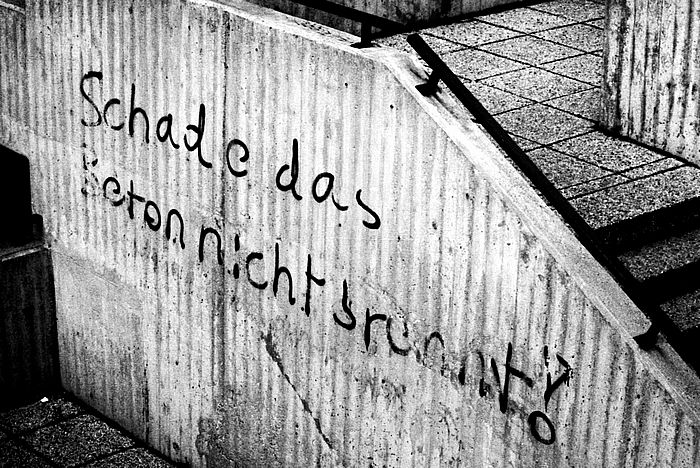 Schade das
Beton nicht brennt!